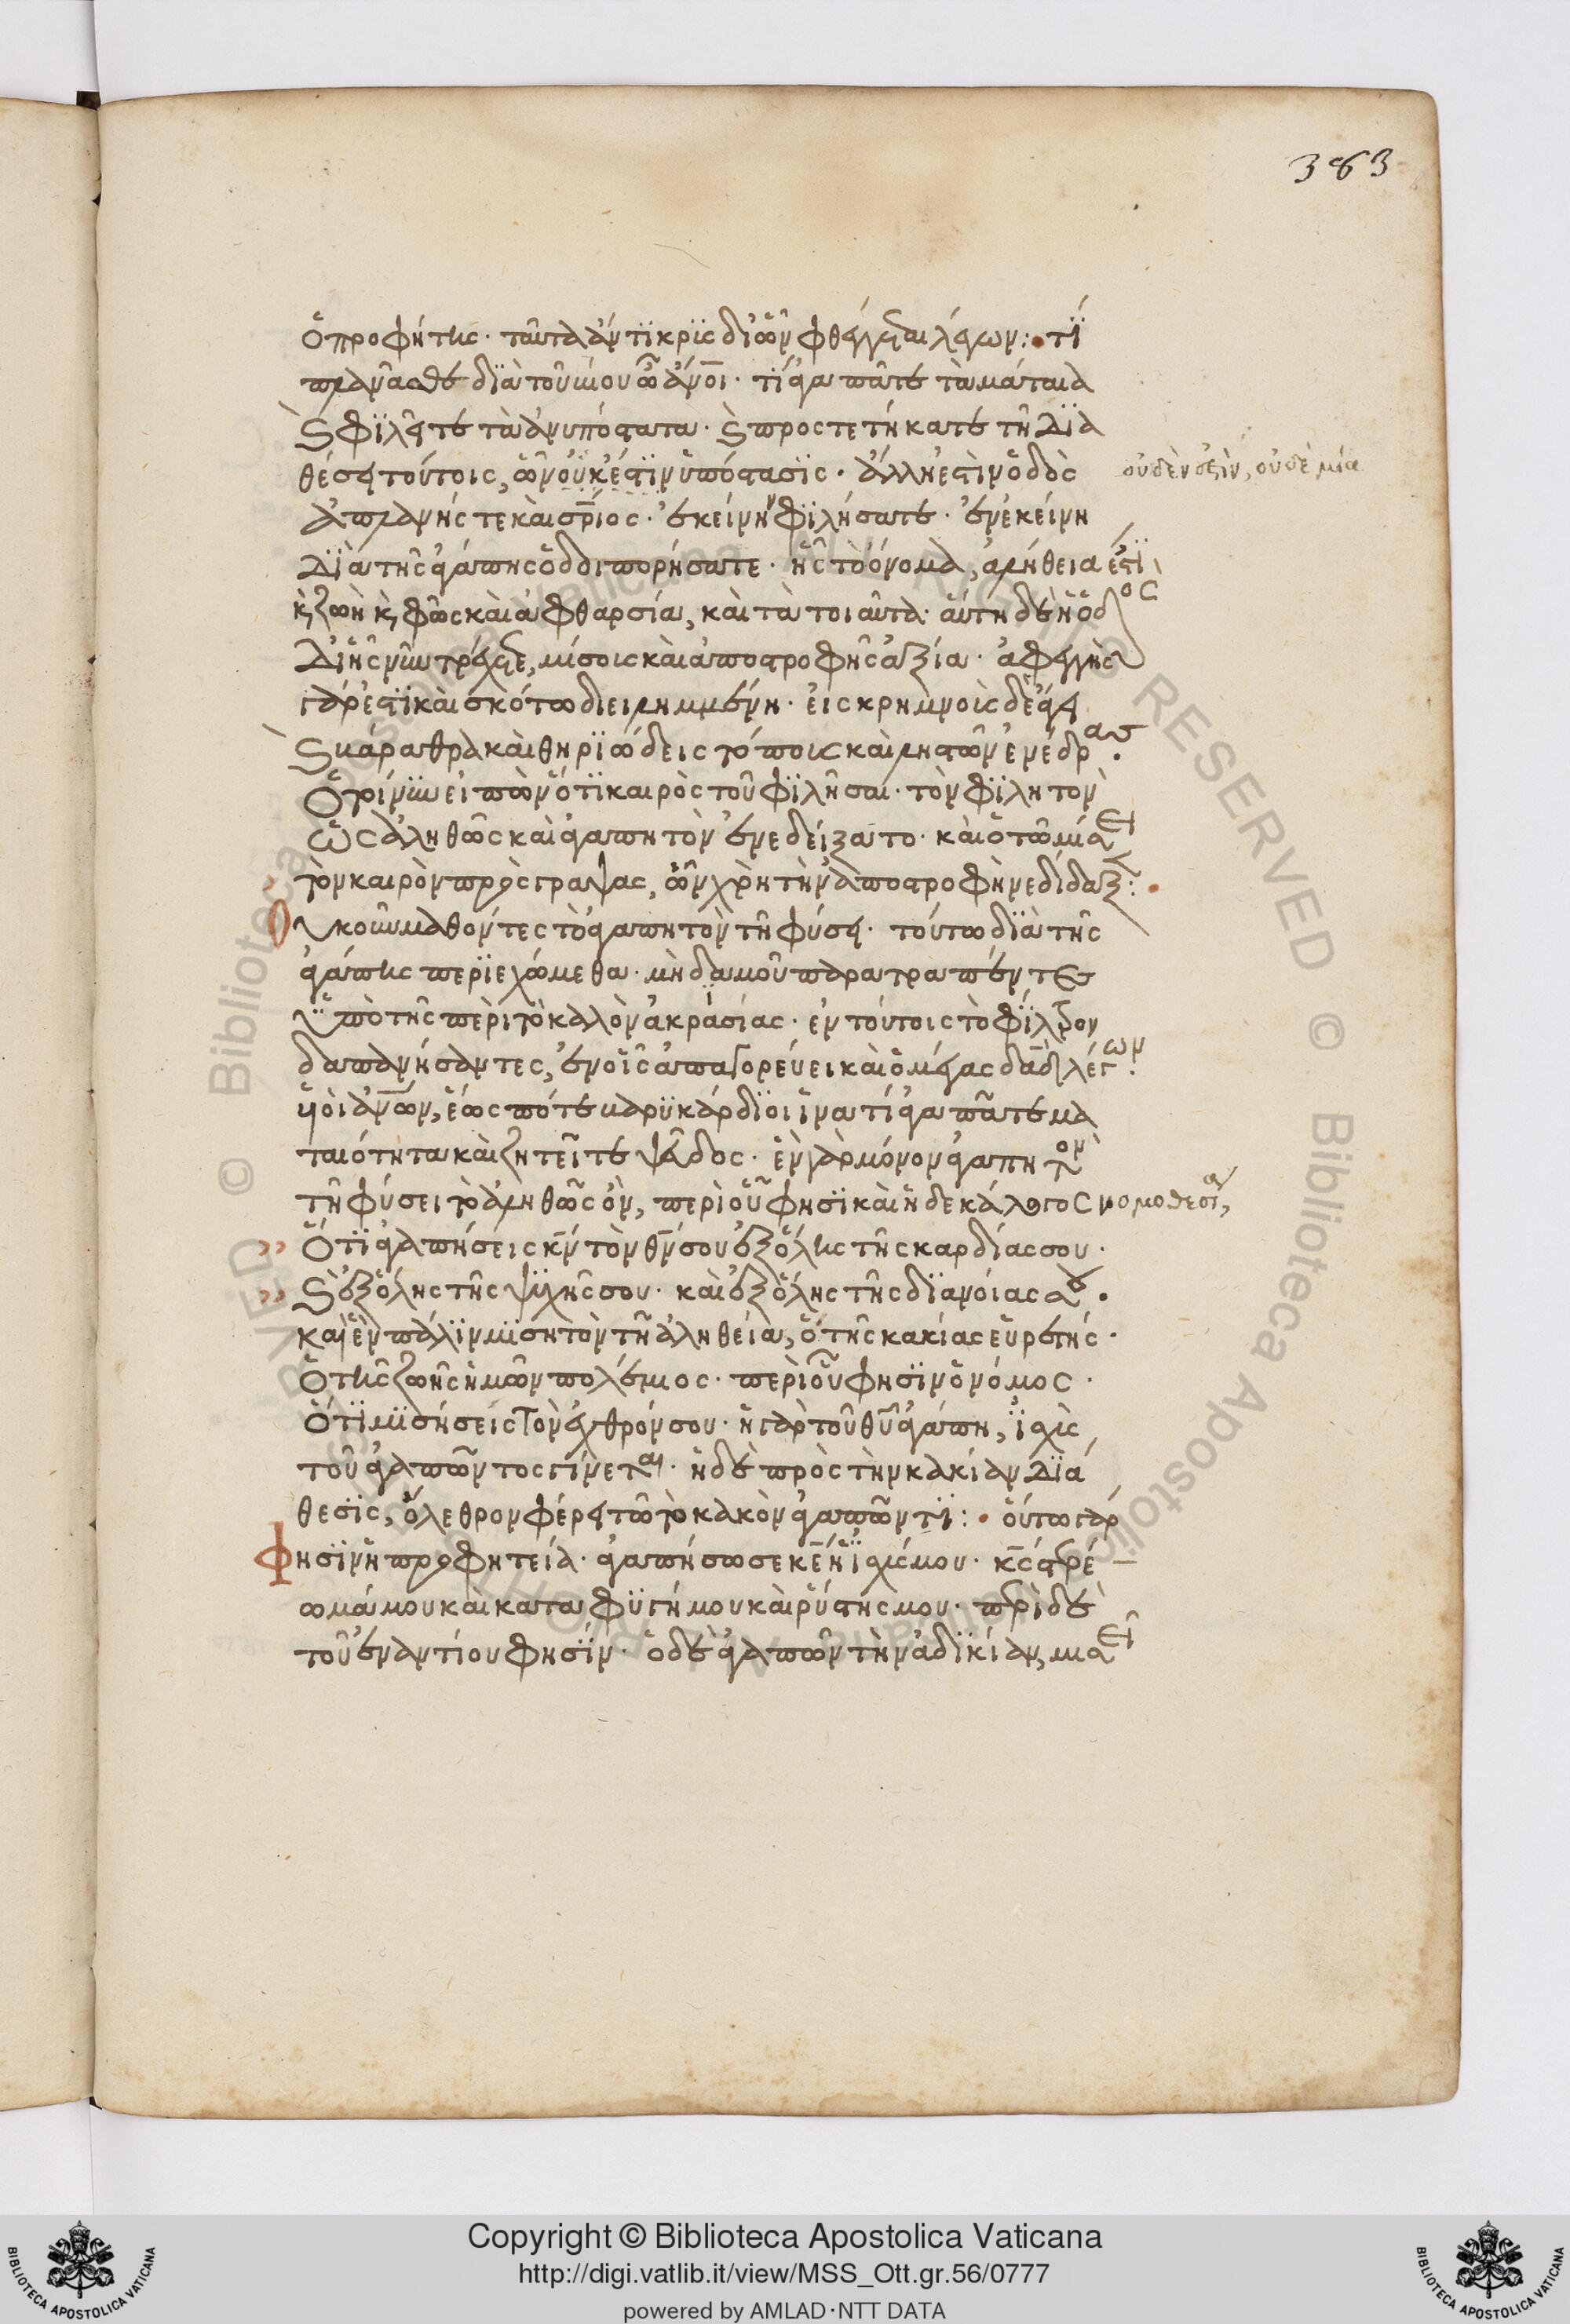 383
ὁ προφήτης· ταῦτα ἀντικρὶς δι᾽ ὧν φθέγγεται λέγων:· τί
πλανᾶσθε διὰ τοῦ βίου ὦ ἄνοι· τί ἀγαπᾶτε τὰ μάταια
καὶ φιλεῖτε τὰ ἀνυπόστατα· καὶ προστετήκατε τῇ δια
θέσει τούτοις, ὧν οὐκ ἔστιν ὑπόστασις· ἄλλη ἐστὶν ὁδὸς
οὐδὲν ἐστὶν, οὐδὲ μία
ἀπλανής τε καὶ σπριος· ἐκείνην φιλήσατε· ἐν ἐκείνῃ
διὰ τῆς ἀγάπης ὁδοιπορήσατε· ἧς τὸ ὄνομα, ἀλήθεια ἐστὶ
κ, ζωὴ κ, φῶς καὶ ἀφθαρσία, καὶ τὰ τοιαῦτα· αὕτη δὲ ἡ ὁδὸς
δι᾽ ἧς νῦν τρέχετε, μίσους καὶ ἀποστροφῆς ἀξία· ἀφεγγὴς
γάρ ἐστι καὶ σκότω διειλημμένη· εἰς κρημνοὺς δὲ ἄγει
καὶ βάραθρα καὶ θηριώδεις τόπους καὶ ληστῶν ἐνέδρας.
Ὁ τοίνυν εἰπὼν ὅτι καιρὸς τοῦ φιλῆσαι· τὸν φιλητὸν
ὡς ἀληθῶς καὶ ἀγαπητὸν ἐνεδείξατο· καὶ ὁ τῶ μίσει
τὸν καιρὸν προσγράψας, ὧν χρὴ τὴν ἀποστροφὴν ἐδίδαξε:·
Οὐκοῦν μαθόντες τὸ ἀγαπητὸν τῇ φύσει· τούτω διὰ τῆς
ἀγάπης περιεχώμεθα· μηδαμοῦ παρατραπέντες
ὑπὸ τῆς περὶ τὸ καλὸν ἀκρασίας· ἐν τούτοις τὸ φίλτρον
δαπανήσαντες, ἐν οἷς ἀπαγορεύει καὶ ὁ μέγας δαδ λέγων.
υἱοὶ ἀνων, ἕως πότε βαρυκάρδιοι ἵνα τί ἀγαπᾶτε μα
ταιότητα καὶ ζητεῖτε ψεῦδος· ἓν γὰρ μόνον ἀγαπητὸν
τῇ φύσει τὸ ἀληθῶς ὄν, περὶ οὗ φησὶ καὶ ἡ δεκάλογος νομοθεσία,
Ὅτι ἀγαπήσεις κν τὸν θν σου ἐξ ὅλης τῆς καρδίας σου·
καὶ ἐξ ὅλης τῆς ψυχῆς σου· καὶ ἐξ ὅλης τῆς διανοίας σου.
καὶ ἓν πάλιν μισητὸν τῇ ἀληθεία, ὁ τῆς κακίας εὑρετής·
ὁ τῆς ζωῆς ἡμῶν πολέμιος· περὶ οὗ φησὶν ὁ νόμος·
ὅτι μισήσεις τὸν ἐχθρόν σου· ἡ γὰρ τοῦ θυ ἀγάπη, ἰσχὺς
τοῦ ἀγαπῶντος γίνεται· ἡ δὲ πρὸς τὴν κακίαν διά
θεσις, ὄλεθρον φέρει τῶ τὸ κακὸν ἀγαπῶντι:· οὕτω γάρ
Φησὶν ἡ προφητεία· ἀγαπήσω σε κε ἡ ἰσχύς μου· κς στερέ
ωμά μου καὶ καταφυγή μου καὶ ῥύστης μου· περὶ δὲ
τοῦ ἐναντίου φησίν· ὁ δὲ ἀγαπῶν τὴν ἀδικίαν, μισεῖ
Copyright © Biblioteca Apostolica Vaticana
http://digi.vatlib.it/view/MSS_Ott.gr.56/0777
powered by AMLAD·NTT DATA